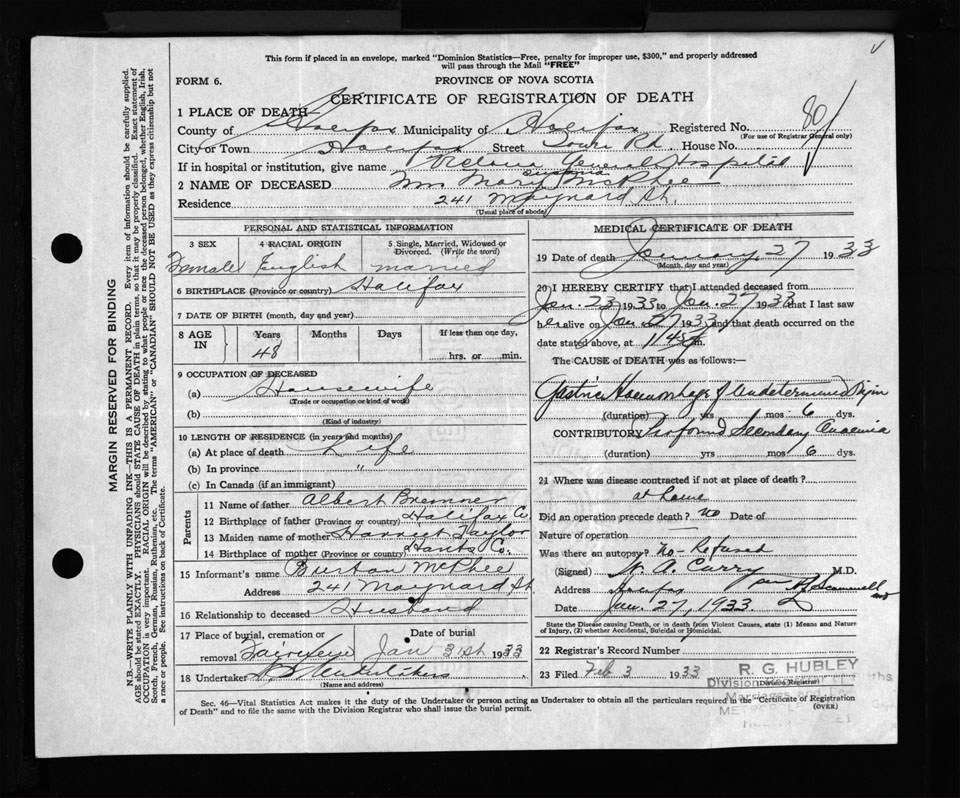 This form if placed in an envelope, marked "Dominion Statistics—Free, penalty for improper use, $300," and properly addressed
will pass through the Mail "FREE"
FORM 6.
PROVINCE OF NOVA SCOTIA
CERTIFICATE OF REGISTRATION OF DEATH
1 PLACE OF DEATH—
County of Halifax Municipality of Halifax Registered No. 80
(For use of Registrar General only)
City or Town Halifax Street South Rd House No.
If in hospital or institution, give name Victoria General Hospital
2 NAME OF DECEASED Mrs Mary McPhee
Residence 241 Maynard St.
(Usual place of abode)
PERSONAL AND STATISTICAL INFORMATION
3 SEX 4 RACIAL ORIGIN 5 Single, Married, Widowed or Divorced. (Write the word)
Female English married
6 BIRTHPLACE (Province or country) Halifax
7 DATE OF BIRTH (month, day and year)
8 AGE IN Years Months Days If less than one day,
48 hrs. or min.
9 OCCUPATION OF DECEASED
(a) Housewife
(Trade or occupation or kind of work)
(b)
(Kind of industry)
10 LENGTH OF RESIDENCE (in years and months)
(a) At place of death Life
(b) In province "
(c) In Canada (if an immigrant)
Parents
11 Name of father Albert Bremner
12 Birthplace of father (Province or country) Halifax Co
13 Maiden name of mother Harriet Taylor
14 Birthplace of mother (Province or country) Hants Co.
15 Informant's name Burton McPhee
Address 241 Maynard St
16 Relationship to deceased Husband
17 Place of burial, cremation or removal Date of burial
Jan 31st 1933
18 Undertaker
(Name and address)
MEDICAL CERTIFICATE OF DEATH
19 Date of death January 27 1933
(Month, day and year)
20 I HEREBY CERTIFY that I attended deceased from
Jan. 23 1933 to Jan. 27 1933 that I last saw
her alive on Jan 27 1933 and that death occurred on
date stated above, at m.
The CAUSE OF DEATH was as follows:—
Gastric Haemorrhage of Undetermined Origin
(duration) yrs mos 6 dys.
CONTRIBUTORY Profound Secondary Anaemia
(duration) yrs mos 6 dys.
21 Where was disease contracted if not at place of death?
at home
Did an operation precede death? no Date of
Nature of operation
Was there an autopsy? No - Refused
(Signed) W. A. Curry M.D.
Address Halifax
Date Jan. 27, 1933
State the Disease causing Death, or in death from Violent Causes, state (1) Means and Nature
of Injury, (2) whether Accidental, Suicidal or Homicidal.
22 Registrar's Record Number
23 Filed Feb 3 1933 R. G. HUBLEY
(Division Registrar)
Sec. 46—Vital Statistics Act makes it the duty of the Undertaker or person acting as Undertaker to obtain all the particulars required in the "Certificate of Registration
of Death" and to file the same with the Division Registrar who shall issue the burial permit. (OVER)
MARGIN RESERVED FOR BINDING
N.B.—WRITE PLAINLY WITH UNFADING INK—THIS IS A PERMANENT RECORD. Every item of information should be carefully supplied.
AGE should be stated EXACTLY. PHYSICIANS should STATE CAUSE OF DEATH in plain terms, so that it may be properly classified. Exact statement of
OCCUPATION is very important. RACIAL ORIGIN will be described by stating to what people or race the deceased person belonged, whether English, Irish,
Scotch, French, German, Russian, Ruthenian, etc. The terms "AMERICAN" or "CANADIAN" SHOULD NOT BE USED as they express citizenship but not
a race or people. See instructions on back of Certificate.